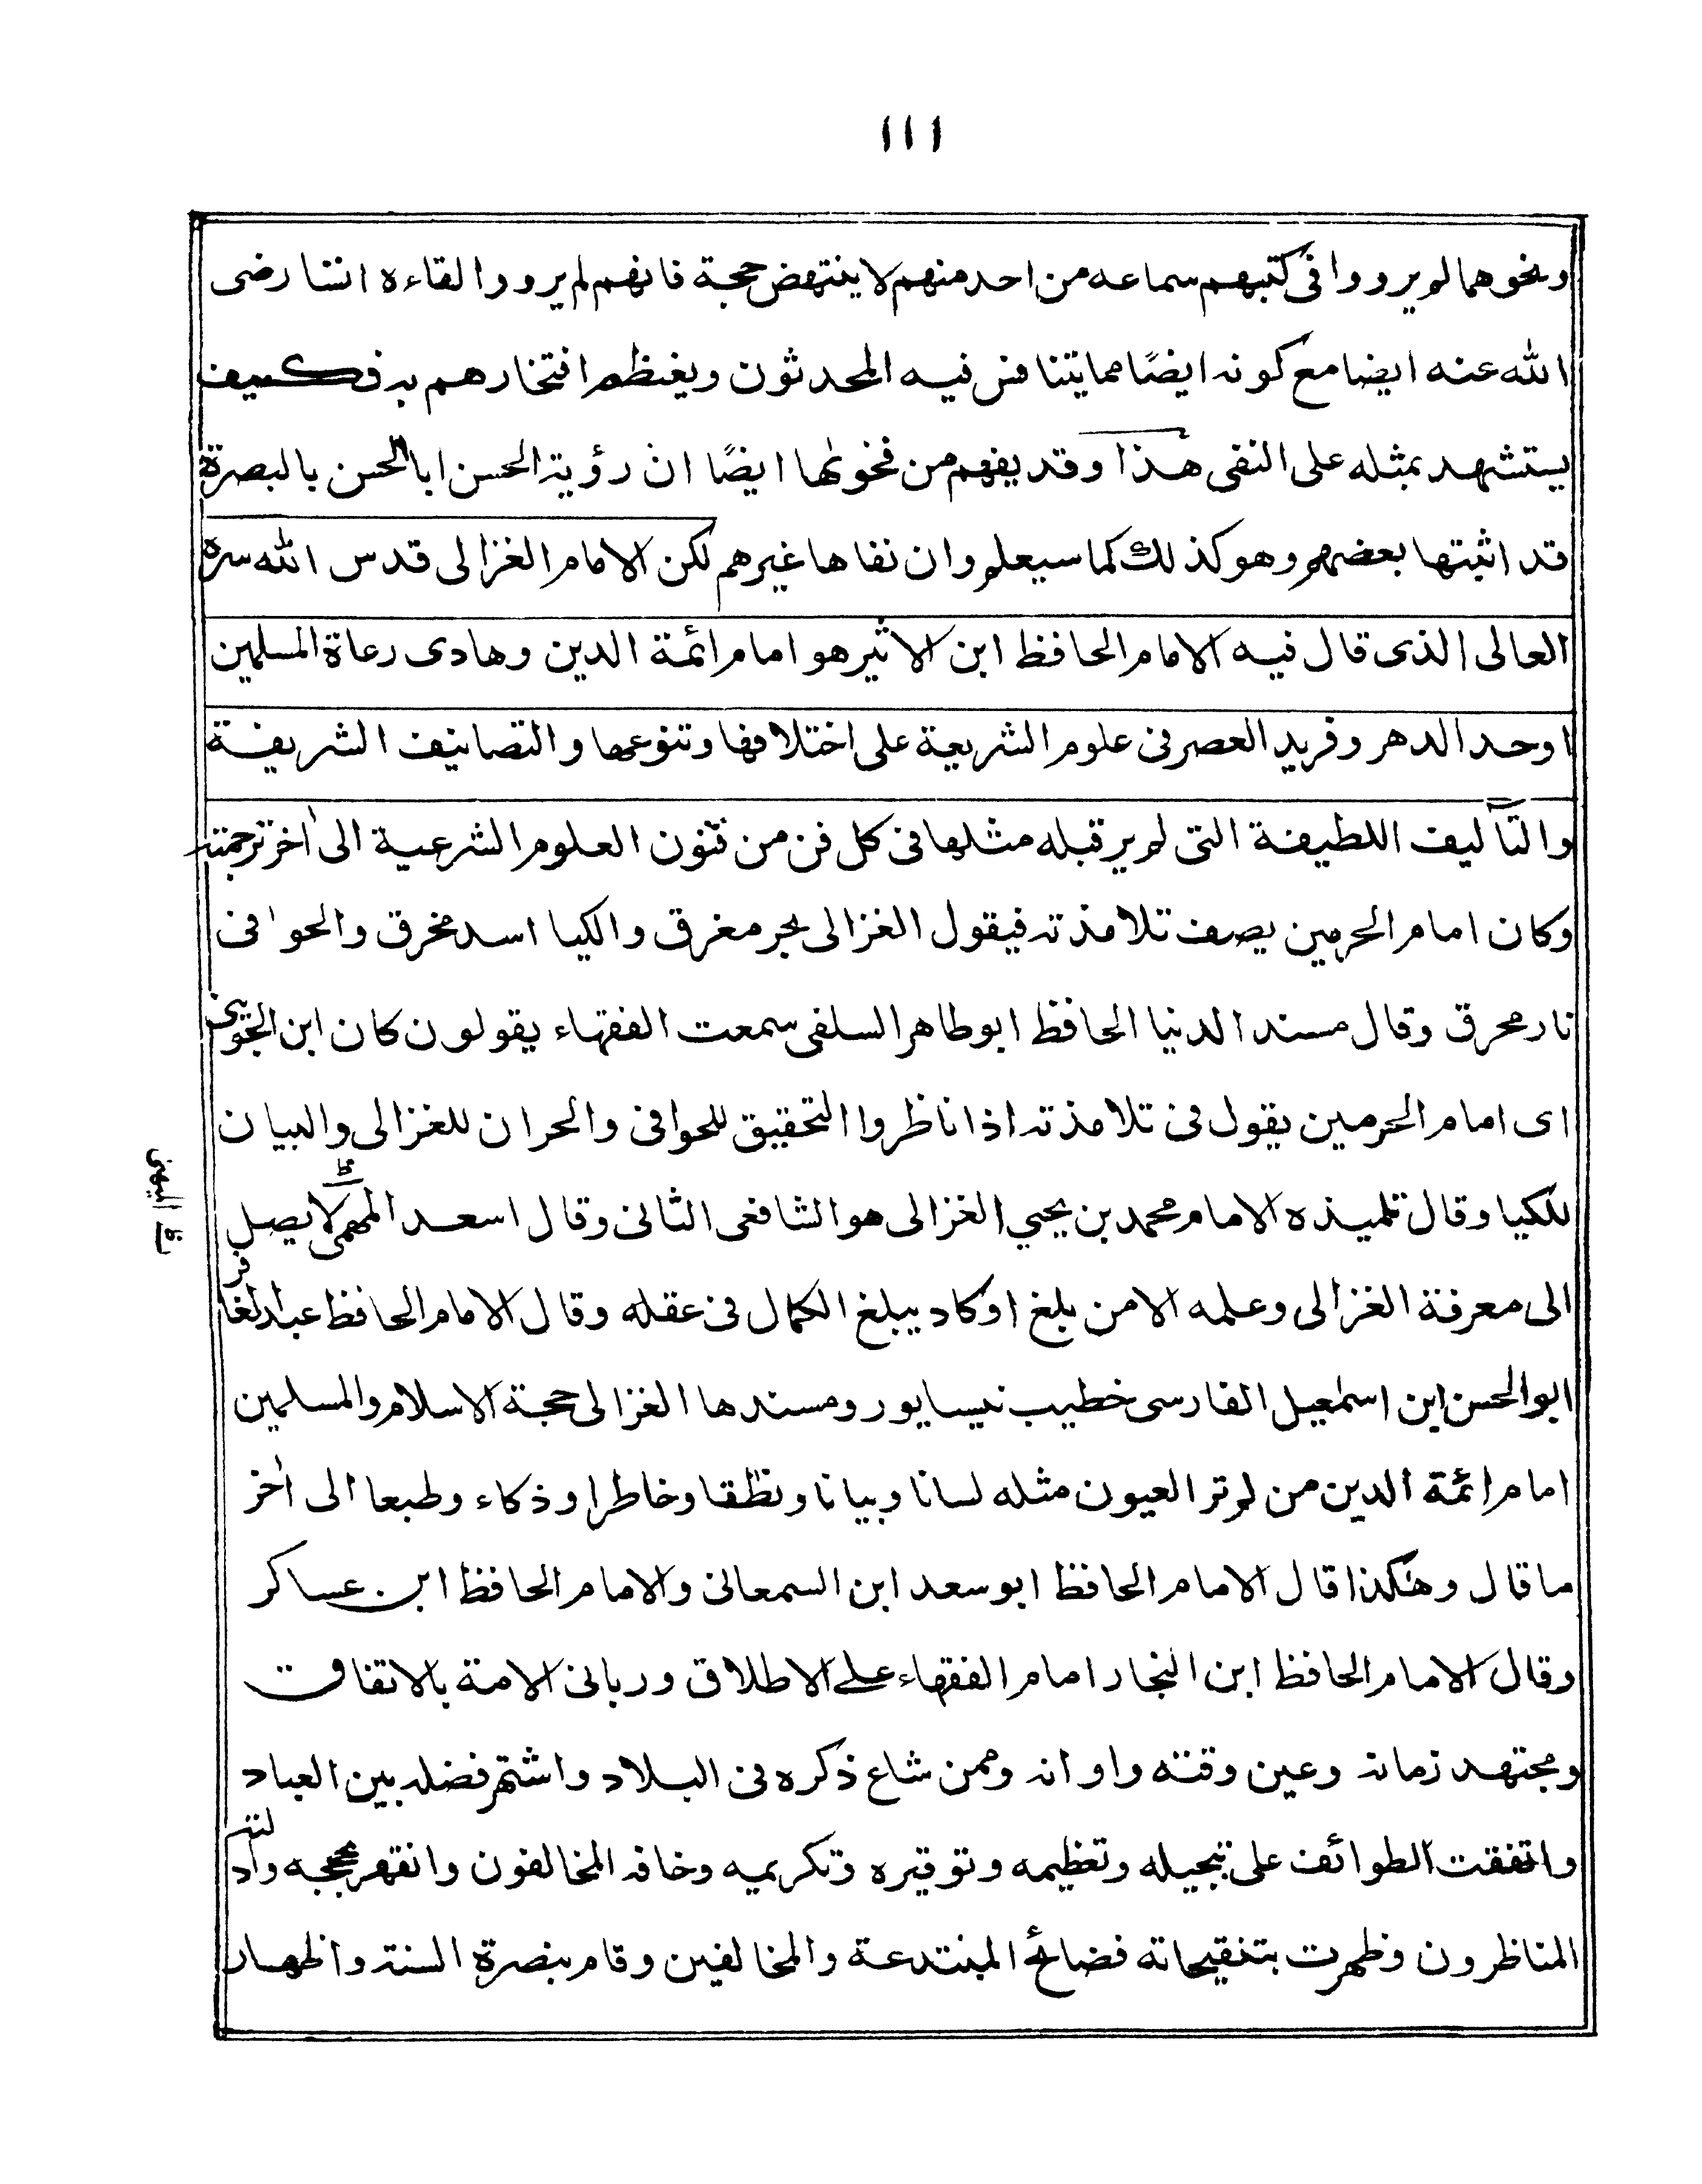 ١١١
ونحوهما لم يرووا فى كتبهم سماعه من احد منهم لا ينتهض حجة فانهم لم يرووا لقاءه انسا رضى
الله عنه ايضا مع كونه ايضًا مما يتنافس فيه المحدثون ويعظم افتخارهم به فكيف
يستشهد بمثله على النفى هذا وقد يفهم من فحوٰها ايضًا ان رؤية الحسن ابا الحسن بالبصرة
قد اثبتها بعضهم وهو كذلك كما سيعلم وان نفاها غيرهم لكن الامام الغزالى قدس الله سره
العالى الذى قال فيه الامام الحافظ ابن الاثير هو امام ائمة الدين وهادى رعاة المسلمين
اوحد الدهر وفريد العصر فى علوم الشريعة على اختلافها وتنوعها والتصانيف الشريفة
والتآليف اللطيفة التى لم ير قبله مثلها فى كل فن من فنون العلوم الشرعية الى اٰخر ترجمته
وكان امام الحرمين يصف تلامذته فيقول الغزالى بحر مغرق والكيا اسد مخرق والخوافى
نار محرق وقال مسند الدنيا الحافظ ابو طاهر السلفى سمعت الفقهاء يقولون كان ابن الجوينى
اى امام الحرمين يقول فى تلامذته اذا ناظروا التحقيق للخوافى والحران للغزالى والبيان
للكيا وقال تلميذه الامام محمد بن يحيي الغزالى هو الشافعى الثانى وقال اسعد المهمى لا يصل
الى معرفة الغزالى وعلمه الا من بلغ او كاد يبلغ الكمال فى عقله وقال الامام الحافظ عبد الغافر
ابو الحسن ابن اسمٰعيل الفارسى خطيب نيسابور ومسندها الغزالى حجة الاسلام والمسلمين
امام ائمة الدين من لم تر العيون مثله لسانا وبيانا ونطقا وخاطرا وذكاء وطبعا الى اٰخر
ما قال وهٰكذا قال الامام الحافظ ابو سعد ابن السمعانى والامام الحافظ ابن عساكر
وقال الامام الحافظ ابن النجار امام الفقهاء على الاطلاق وربانى الامة بالاتفاق
ومجتهد زمانه وعين وقته واوانه وممن شاع ذكره فى البلاد واشتهر فضله بين العباد
واتفقت الطوائف على تبجيله وتعظيمه وتوقيره وتكريمه وخافه المخالفون وانقهر بحججه وادلته
المناظرون وظهرت بتنقيحاته فضائح المبتدعة والمخالفين وقام بنصرة السنة واظهار